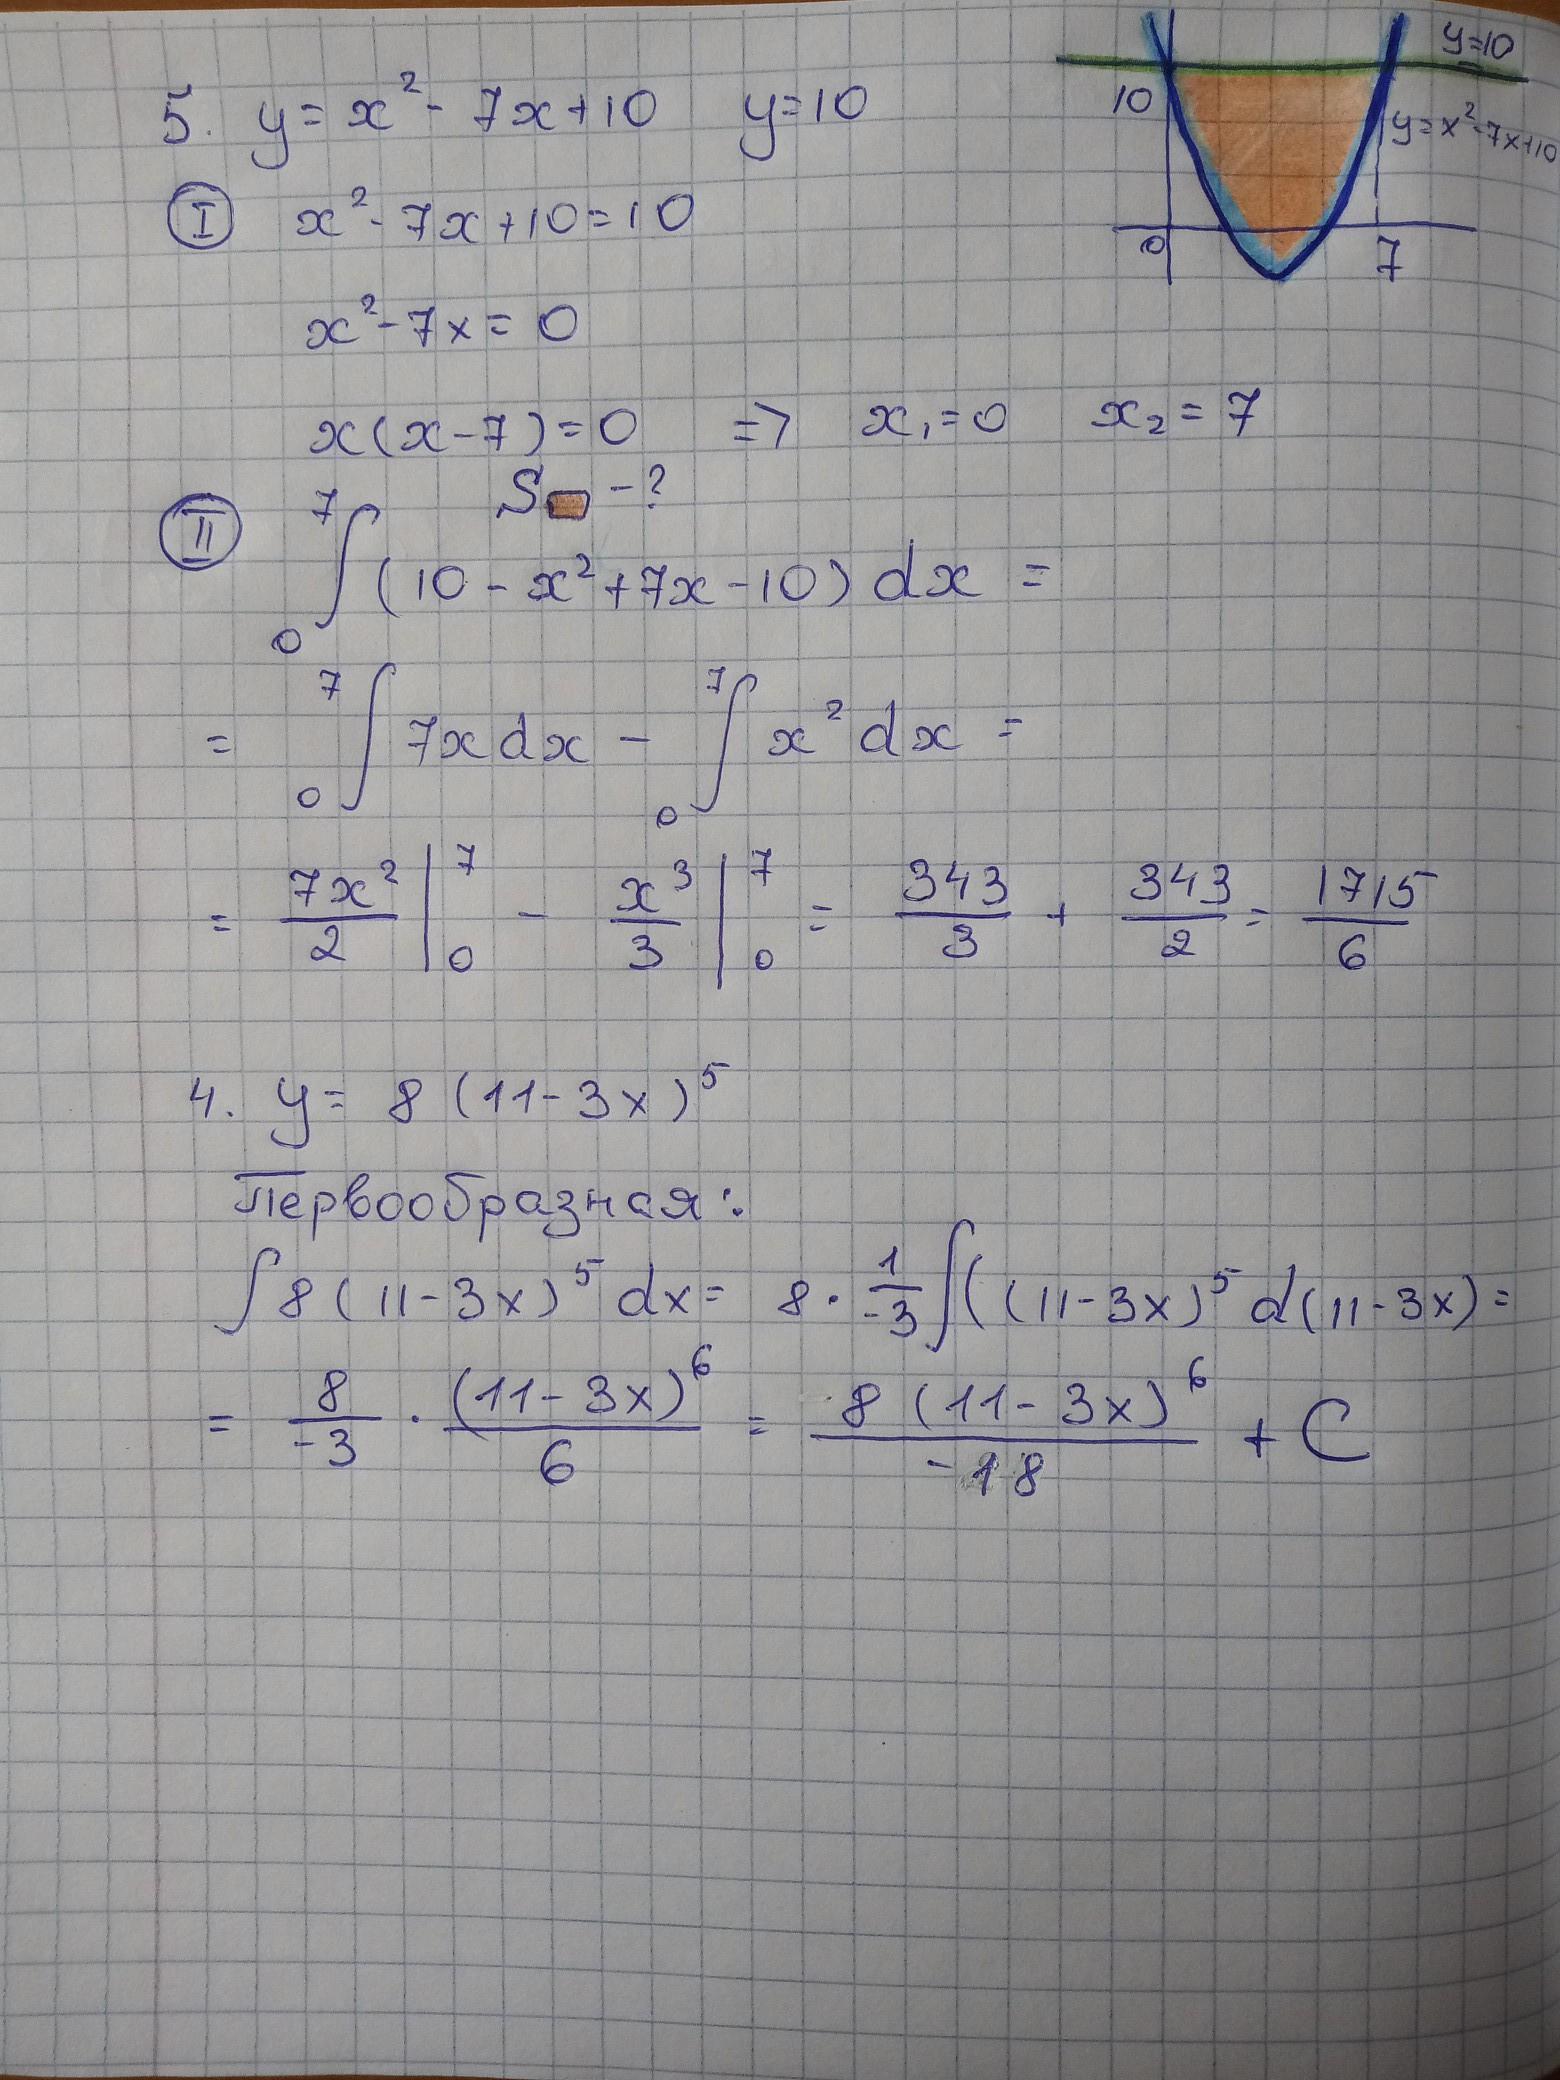 5. y = x² - 7x + 10 y = 10
y = 10
10
y = x² - 7x + 10
0 7
I x² - 7x + 10 = 10
x² - 7x = 0
x(x - 7) = 0 => x₁ = 0 x₂ = 7
S - ?
II ∫₀⁷ (10 - x² + 7x - 10) dx =
= ∫₀⁷ 7x dx - ∫₀⁷ x² dx =
= 7x²/2 |₀⁷ - x³/3 |₀⁷ = 343/3 + 343/2 = 1715/6
4. y = 8 (11 - 3x)⁵
Первообразная:
∫ 8 (11 - 3x)⁵ dx = 8 · 1/-3 ∫ ((11 - 3x)⁵ d(11 - 3x) =
= 8/-3 · (11 - 3x)⁶/6 = 8 (11 - 3x)⁶/-18 + C